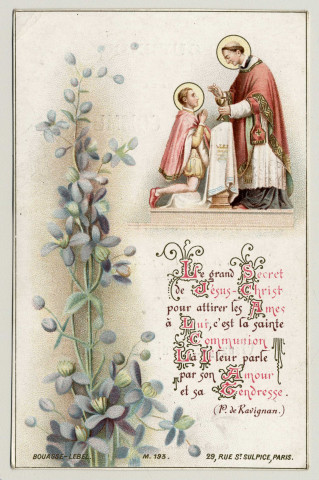 Le grand Secret
de Jésus-Christ
pour attirer les Ames
à Lui, c'est la sainte
Communion
Là Il leur parle
par son Amour
et sa Tendresse.
(P. de Ravignan.)
BOUASSE-LEBEL. M. 193. 29, RUE ST SULPICE, PARIS.